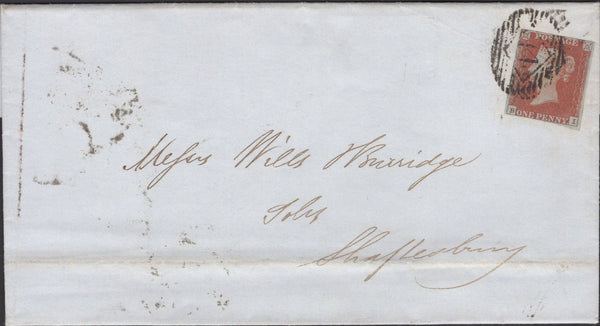 POSTAGE
ONE PENNY
Messrs Wills & Burridge
Solrs
Shaftesbury